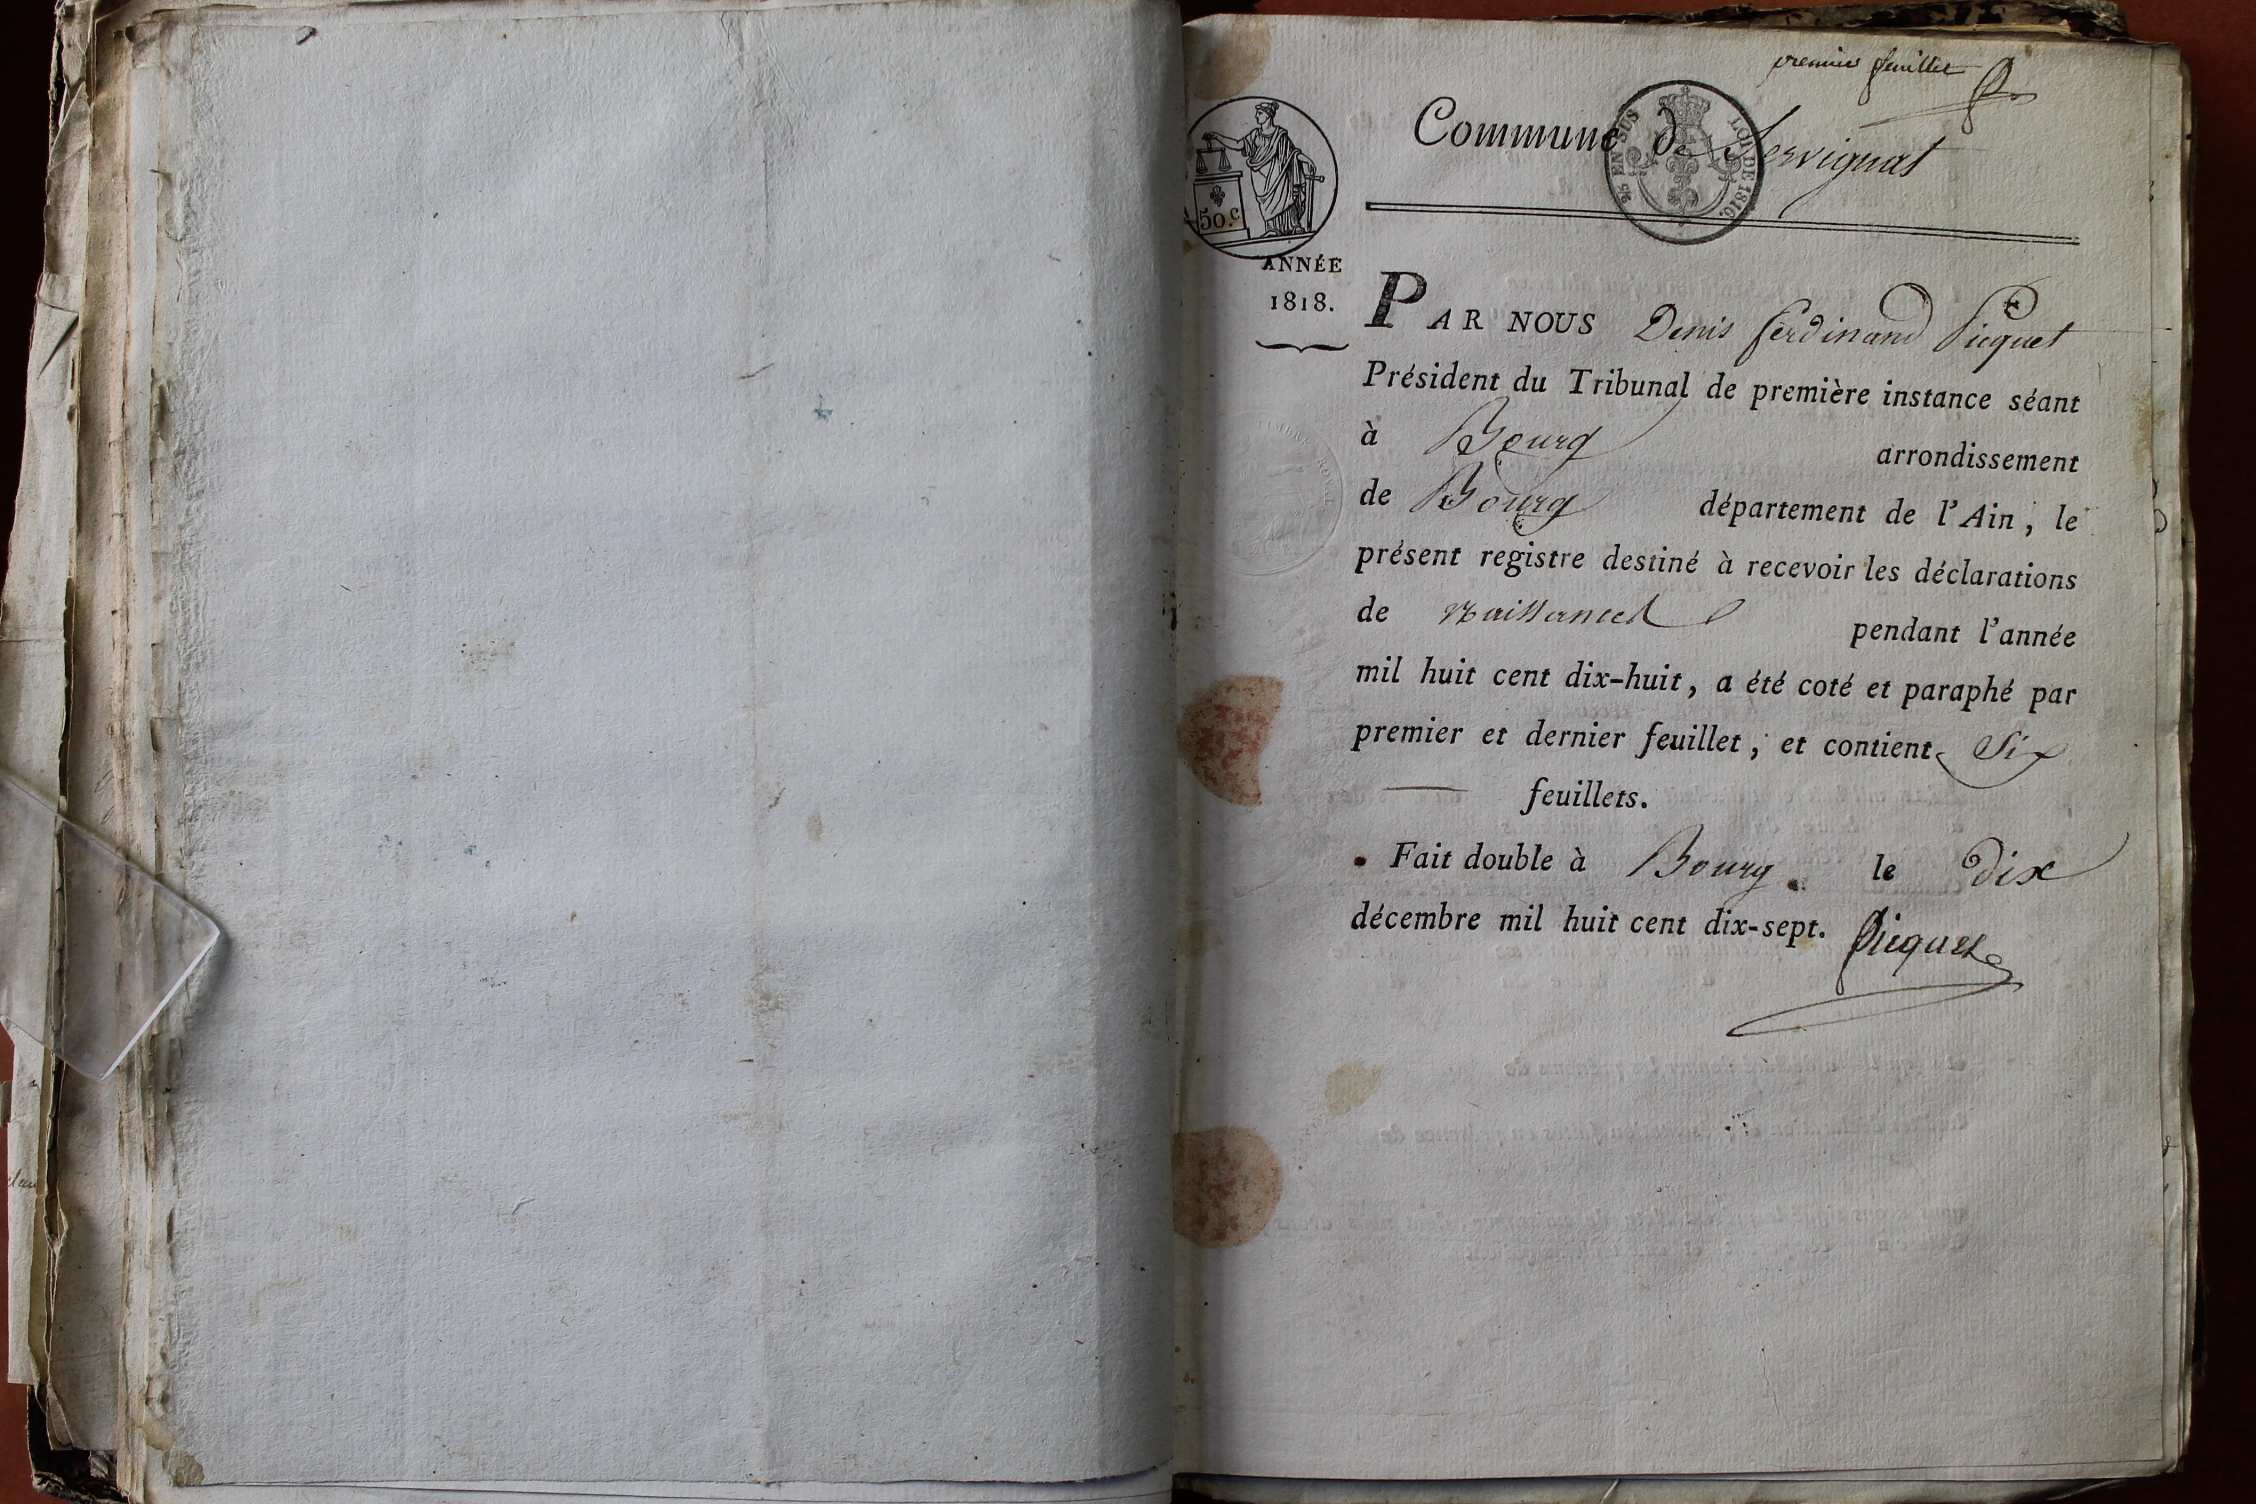 premier feuillet
Commune de Servignat
EN SUS
LOI DE 1816.
50.c
ANNÉE
1818.
PAR NOUS Denis ferdinand Picquet
Président du Tribunal de première instance séant
à Bourg arrondissement
de Bourg département de l'Ain, le
présent registre destiné à recevoir les déclarations
de Naissances pendant l'année
mil huit cent dix-huit, a été coté et paraphé par
premier et dernier feuillet, et contient Six
feuillets.
Fait double à Bourg. le dix
décembre mil huit cent dix-sept. Picquet